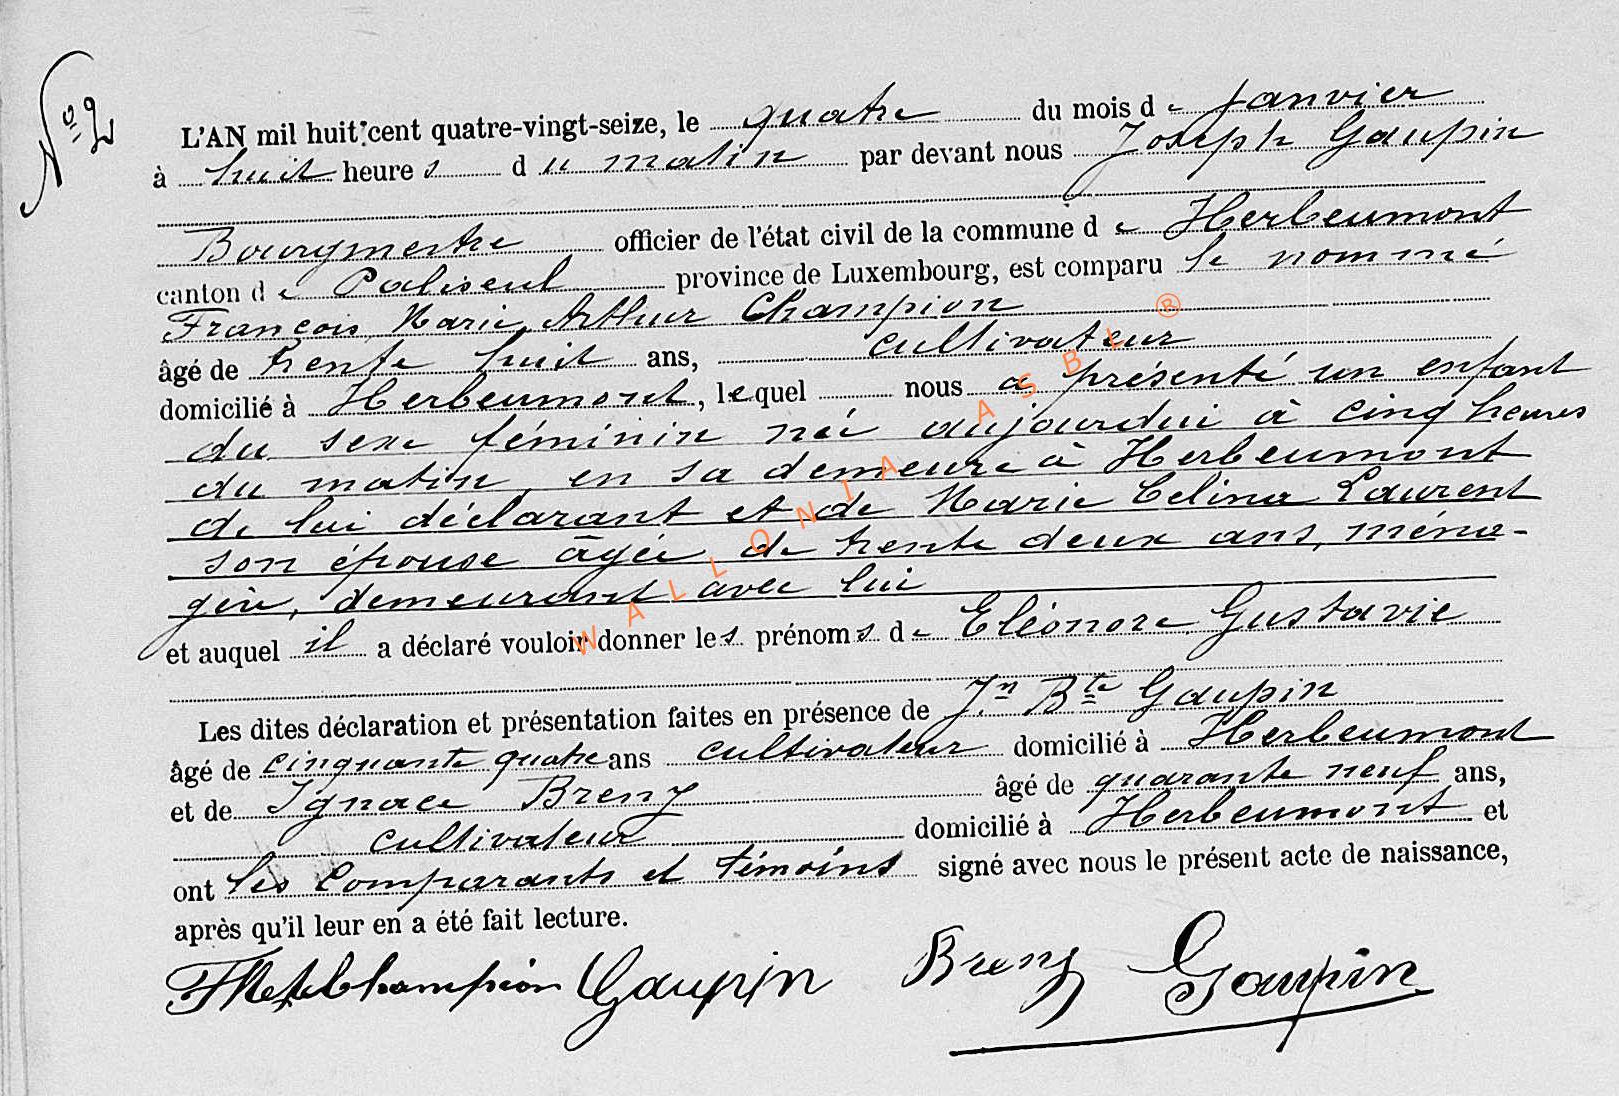 No 2
L'AN mil huit cent quatre-vingt-seize, le quatre du mois de Janvier
à huit heures du matin par devant nous Joseph Gaupin
Bourgmestre officier de l'état civil de la commune de Herbeumont
canton de Paliseul province de Luxembourg, est comparu le nommé
François Marie Arthur Champion
âgé de trente huit ans, cultivateur
domicilié à Herbeumont, lequel nous a présenté un enfant
du sexe féminin née aujourdui à cinq heures
du matin, en sa demeure à Herbeumont
de lui déclarant et de Marie Celina Laurent
son épouse âgée de trente deux ans, ména-
gère, demeurant avec lui
et auquel il a déclaré vouloir donner les prénoms de Eléonore Gustavie
Les dites déclaration et présentation faites en présence de Jn Bte Gaupin
âgé de cinquante quatre ans cultivateur domicilié à Herbeumont
et de Ignace Breny âgé de quarante neuf ans,
cultivateur domicilié à Herbeumont et
ont les Comparants et témoins signé avec nous le présent acte de naissance,
après qu'il leur en a été fait lecture.
Champion Gaupin Breny Gaupin
WALLONIA ASBL ®